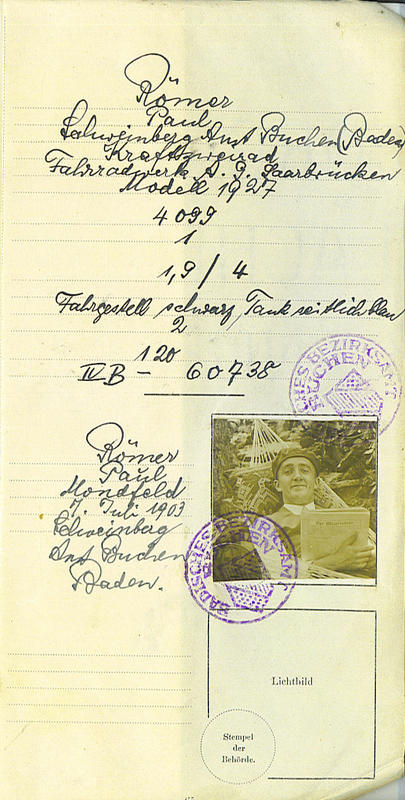 Römer
Paul
Schweinberg Amt Buchen (Baden)
Kraftzweirad
Fahrradwerk A. G. Saarbrücken
Modell 1927
4099
1
1,9 / 4
Fahrgestell schwarz, Tank seitlich blau
2
120
IV B - 60738
BEZIRKSAMT
BUCHEN
Römer
Paul
Mondfeld
7. Juli 1903
Schweinberg
Amt Buchen
Baden.
BADISCHES BEZIRKSAMT
BUCHEN
Lichtbild
Stempel
der
Behörde.